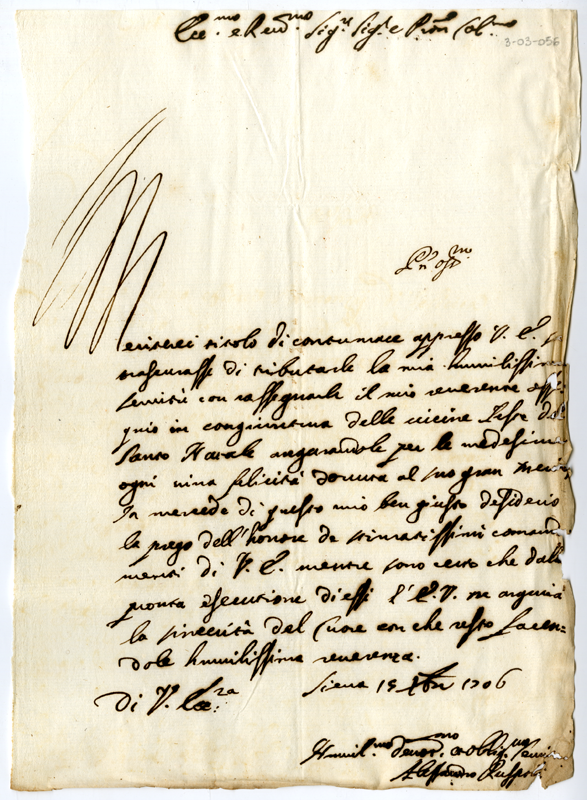 Ecc.mo e Rev.mo Sig.r Sig.r e Pron Col.mo
3-03-056
Pn̄ Oss.mo
Meritarei titolo di contumace appresso V. E. se
trascurasse di tributarle la mia humilissima
servitù con rassegnarle il mio reverente osse
quio in congiuntura delle vicine Feste del
Santo Natale augurandole per le medesime
ogni vera felicità dovuta al suo gran merito
In mercede di questo mio ben giusto desiderio
la prego dell'honore de stimatissimi comanda
menti di V. E. mentre sono certo che dalla
pronta esecutione di essi l'E. V. ne arguirà
la sincerità del Cuore con che resto facen=
dole humilissima reverenza.
Di V. Ecc.za
Siena 15 Xbre 1706
Humil.mo Devot.mo et obblig.mo
Alessandro Ruspoli